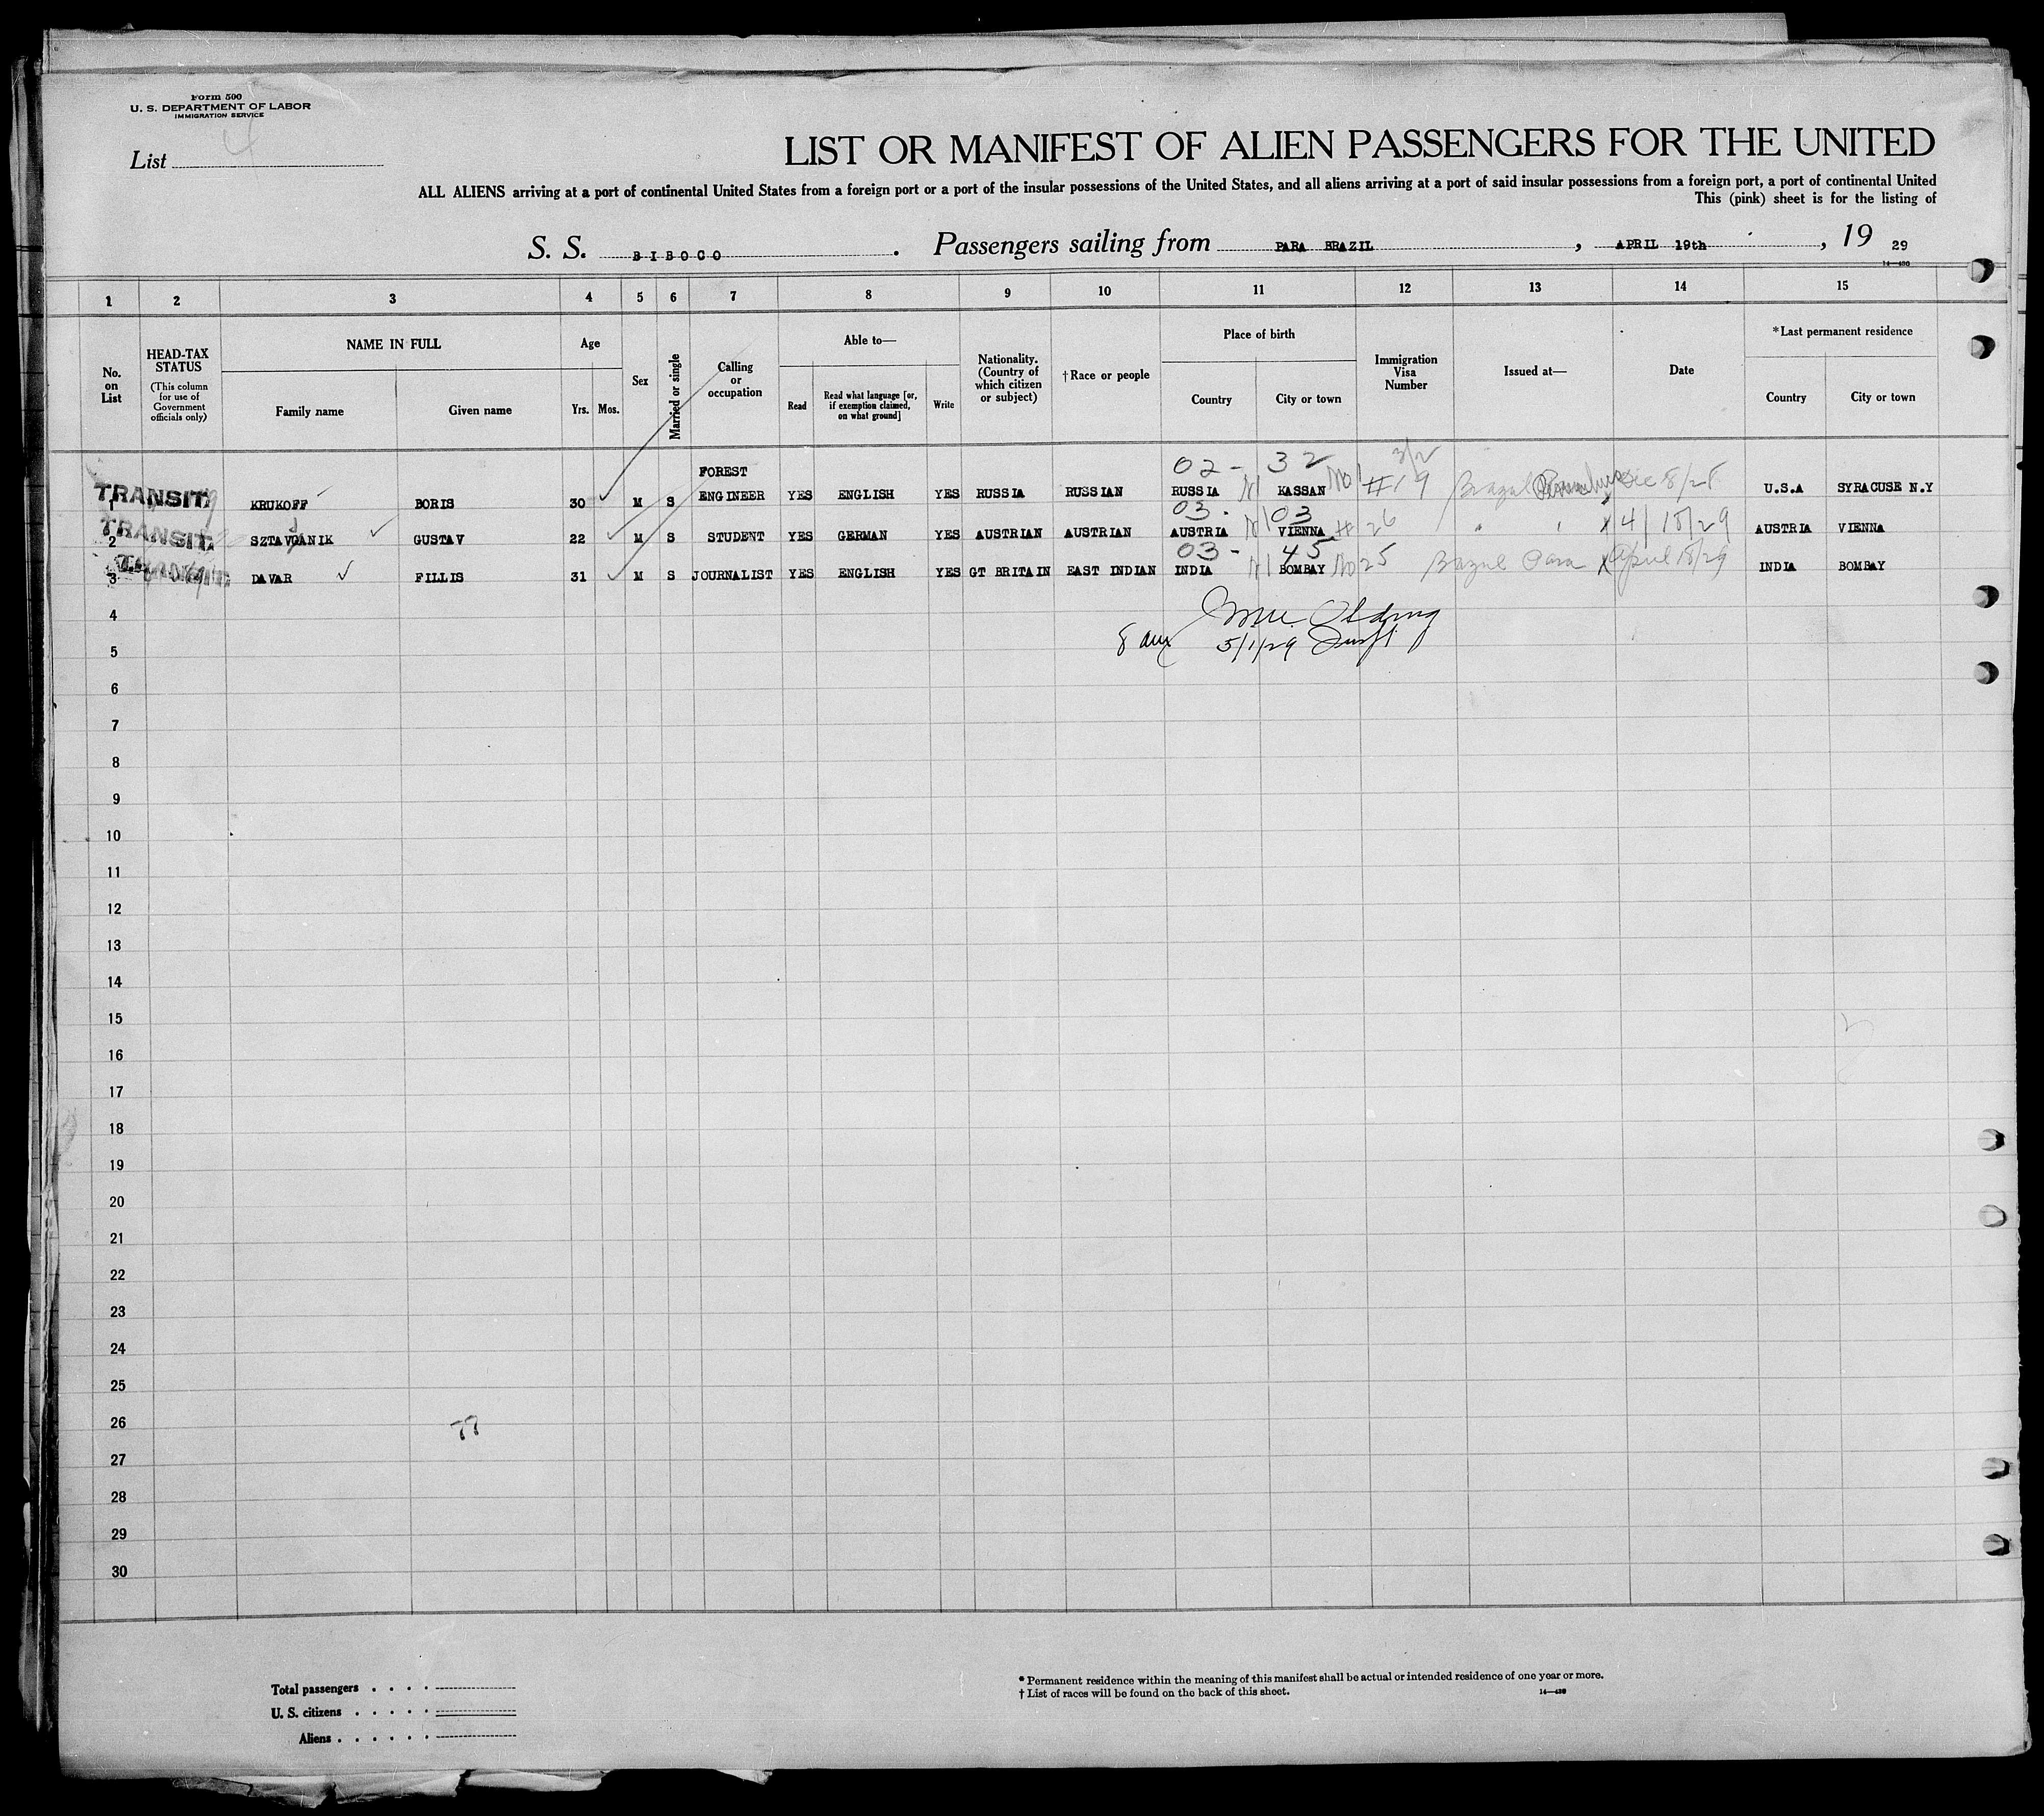 Form 500
U. S. DEPARTMENT OF LABOR
IMMIGRATION SERVICE
List 4
LIST OR MANIFEST OF ALIEN PASSENGERS FOR THE UNITED
ALL ALIENS arriving at a port of continental United States from a foreign port or a port of the insular possessions of the United States, and all aliens arriving at a port of said insular possessions from a foreign port, a port of continental United
This (pink) sheet is for the listing of
S. S. BIBOCO. Passengers sailing from PARA BRAZIL, APRIL 19th, 19 29
14-430
1 2 3 4 5 6 7 8 9 10 11 12 13 14 15
No. on List
HEAD-TAX STATUS
(This column for use of Government officials only)
NAME IN FULL
Family name Given name
Age
Yrs. Mos.
Sex
Married or single
Calling or occupation
Able to—
Read
Read what language [or, if exemption claimed, on what ground]
Write
Nationality. (Country of which citizen or subject)
†Race or people
Place of birth
Country City or town
Immigration Visa Number
Issued at—
Date
*Last permanent residence
Country City or town
02- 32 3/2
TRANSIT 1 KRUKOFF BORIS 30 M S FOREST ENGINEER YES ENGLISH YES RUSSIA RUSSIAN RUSSIA KASSAN No #19 Brazil Dec 8/28 U.S.A SYRACUSE N.Y
03- 03
TRANSIT. 2 SZTAVJANIK GUSTAV 22 M S STUDENT YES GERMAN YES AUSTRIAN AUSTRIAN AUSTRIA VIENNA #26 " " 4/18/29 AUSTRIA VIENNA
03- 45
TRANSIT 3 DAVAR FILLIS 31 M S JOURNALIST YES ENGLISH YES GT BRITAIN EAST INDIAN INDIA BOMBAY No 25 Brazil Para April 18/29 INDIA BOMBAY
4
5
8 am 5/1/29
6
7
8
9
10
11
12
13
14
15
16
17
18
19
20
21
22
23
24
25
26
77
27
28
29
30
Total passengers
U. S. citizens
Aliens
* Permanent residence within the meaning of this manifest shall be actual or intended residence of one year or more.
† List of races will be found on the back of this sheet.
14-430